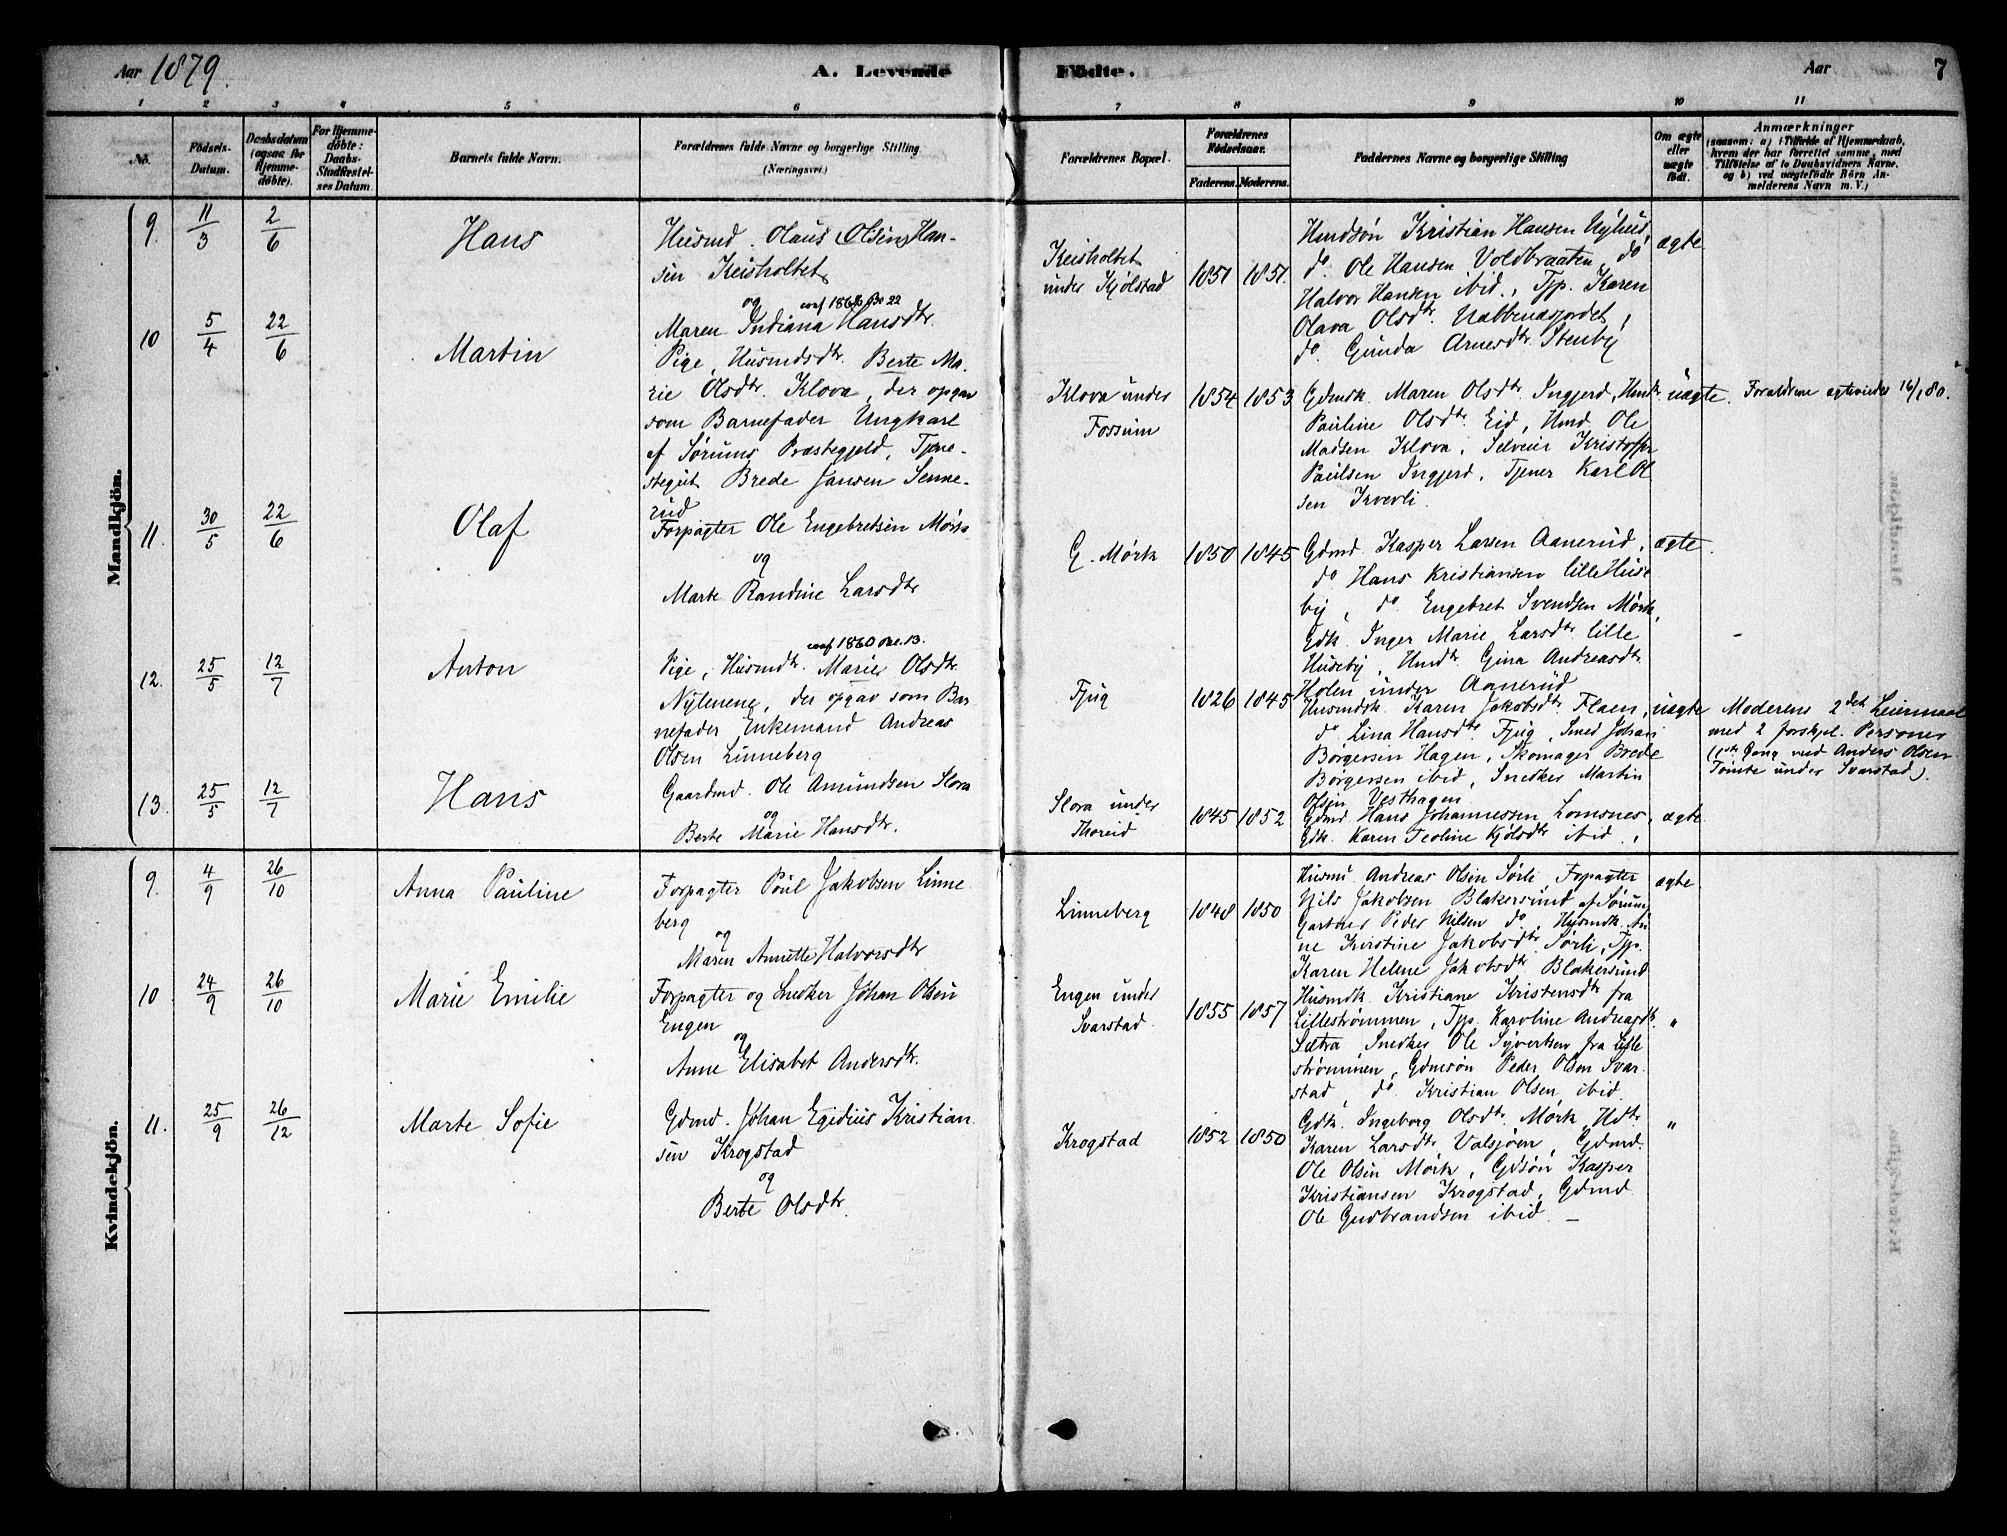 Aar 1879.
A. Levende
Födte.
Aar
7
1 2 3 4 5 6 7 8 9 10 11
No.
Födsels-
Datum.
Daabsdatum
(ogsaa for
Hjemme-
döbte).
For Hjemme-
döbte:
Daabs-
Stadfæstel-
ses Datum.
Barnets fulde Navn.
Forældrenes fulde Navne og borgerlige Stilling.
(Næringsvei.)
Forældrenes Bopæl.
Forældrenes
Födselsaar.
Faderens. Moderens.
Faddernes Navne og borgerlige Stilling
Om ægte
eller
uægte
født.
Anmærkninger
(saasom: a) i Tilfælde af Hjemmedaab,
hvem der har forrettet samme, med
Tilföielse af to Daabsvidners Navne,
og b) ved uægtefödte Börn An-
melderens Navn m. V.)
Mandkjön.
9. 11/3 2/6
Hans
Husmd. Olaus (Olsen) Han-
sen Keisholtet
og
Maren Indiana Hansdtr.
Keisholtet
under Kjölstad
1851 1851
Kristian Hansen Nyhus,
do. Ole Hansen Voldbraaten, do
Halvor Hansen ibid., Tjp. Karen
Olava Olsdtr.
do. Gunda Arnesdtr. Stenby
ægte
10 5/4 22/6
Martin
Pige, Husmdsdtr. Berte Ma-
rie Olsdtr. Klova, der opgav
som Barnefader Ungkarl
af Sørums Præstegjeld, Tjene-
stegut Brede Jansen Senne-
rud
Klova under
Fossum
1854 1853
Gdmdk. Maren Olsdtr. Ingjerd,
Pauline Olsdtr. Eid, Hmd. Ole
Madsen Klova, Selveier Kristoffer
Paulsen Ingjerd, Tjener Karl Ol
sen Kverli.
uægte.
11. 30/5 22/6
Olaf
Forpagter Ole Engebretsen Mørk
og
Marte Randine Larsdtr
G. Mørk
1850 1845
Gdmd. Kasper Larsen Aanerud,
do Hans Kristiansen lille Huse
by, do. Engebret Svendsen Mørk,
Gdk. Inger Marie Larsdtr. lille
Huseby, Gina Andreasdtr.
Holen under Aanerud
ægte.
12. 25/5 12/7
Anton
conf 1860 No. 13.
Pige, Husmdtr. Marie Olsdtr.
Nylenene, der opgav som Bar
nefader Enkemand Andreas
Olsen Linneberg
Tjug
1826 1845
Husmdsk. Karen Jakobsdtr. Flaen,
do Lina Hansdtr. Tjug, Smed Johan
Børgersen Hagen, Skomager Brede
Børgersen ibid, Snedker Martin
Olsen Vesthagen
uægte
Moderens 2det Leiermaal
med 2 forskjel. Personer
(1ste Gang med Anders Olsen
Tømte under Svarstad).
13. 25/5 12/7
Hans
Gaardmd. Ole Amundsen Slora
og
Berte Marie Hansdtr.
Slora under
Thoreid
1845 1852
Gdmd Hans Johannessen Lomsnes,
Gdk. Karen Teoline Kjølsdtr ibid.
ægte
Kvindekjön.
9. 4/9 26/10
Anna Pauline
Forpagter Poul Jakobsen Linne
berg
og
Maren Annette Halvorsdtr
Linneberg
1848 1850
Andreas Olsen Sørli, Forpagter
Nils Jakobsen Blakersund af Sørum,
Gartner Peder Nilsen do, Husmdk. An
ne Kristine Jakobsdtr Sørli, Tjp.
Karen Helene Jakobsdtr Blakersund
ægte.
10 24/9 26/10
Marie Emilie
Forpagter og Snedker Johan Olsen
Engen
og
Anne Elisabet Andersdtr.
Engen under
Svarstad
1855 1857
Husmdk. Kristiane Kristensdtr fra
Lillestrømmen, Tjp. Karoline Andreasdtr.
Sætra, Snedker Ole Syversen fra Lille
strømmen, Gdmsøn Peder Olsen Svar
stad, do. Kristian Olsen, ibid.
"
11. 25/9 26/12
Marte Sofie
Gdmd. Johan Egidius Kristian
sen Krogstad
og
Berte Olsdtr.
Krogstad
1852 1850
Gdk. Ingeborg Olsdtr. Mørk,
Karen Larsdtr Valsjøen, Gdmd.
Ole Olsen Mørk, Gdsøn Kasper
Kristiansen Krogstad, Gdmd
Ole Gudbrandsen ibid. —
"